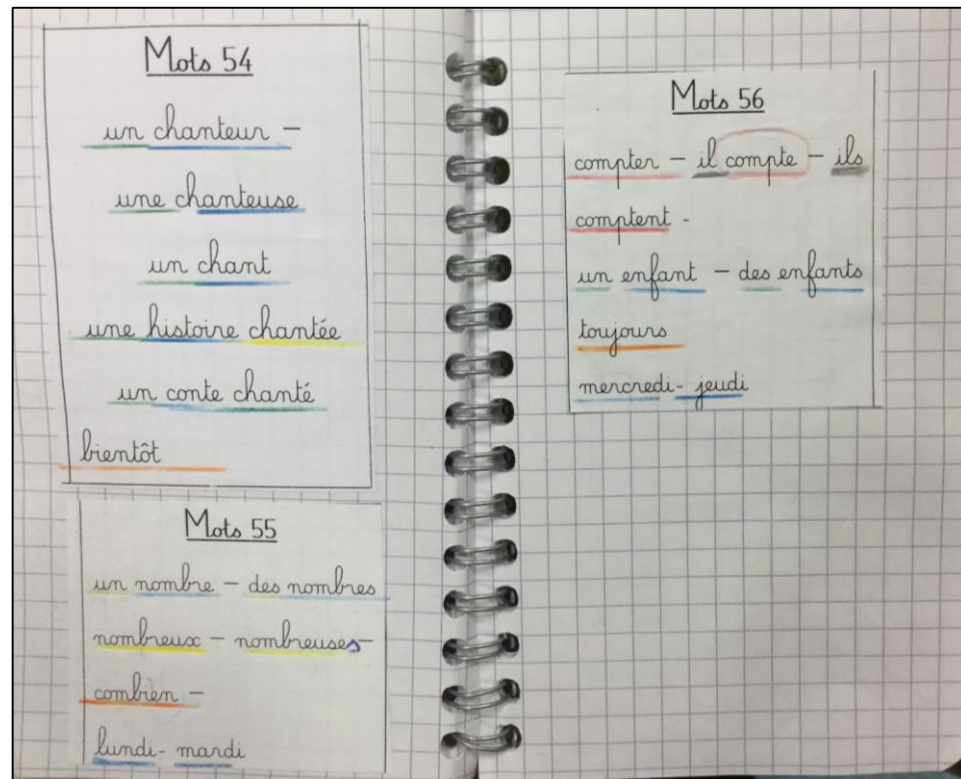 Mots 54
un chanteur –
une chanteuse
un chant
une histoire chantée
un conte chanté
bientôt
Mots 55
un nombre – des nombres
nombreux – nombreuses-
combien –
lundi- mardi
Mots 56
compter – il compte – ils
comptent -
un enfant – des enfants
toujours
mercredi- jeudi